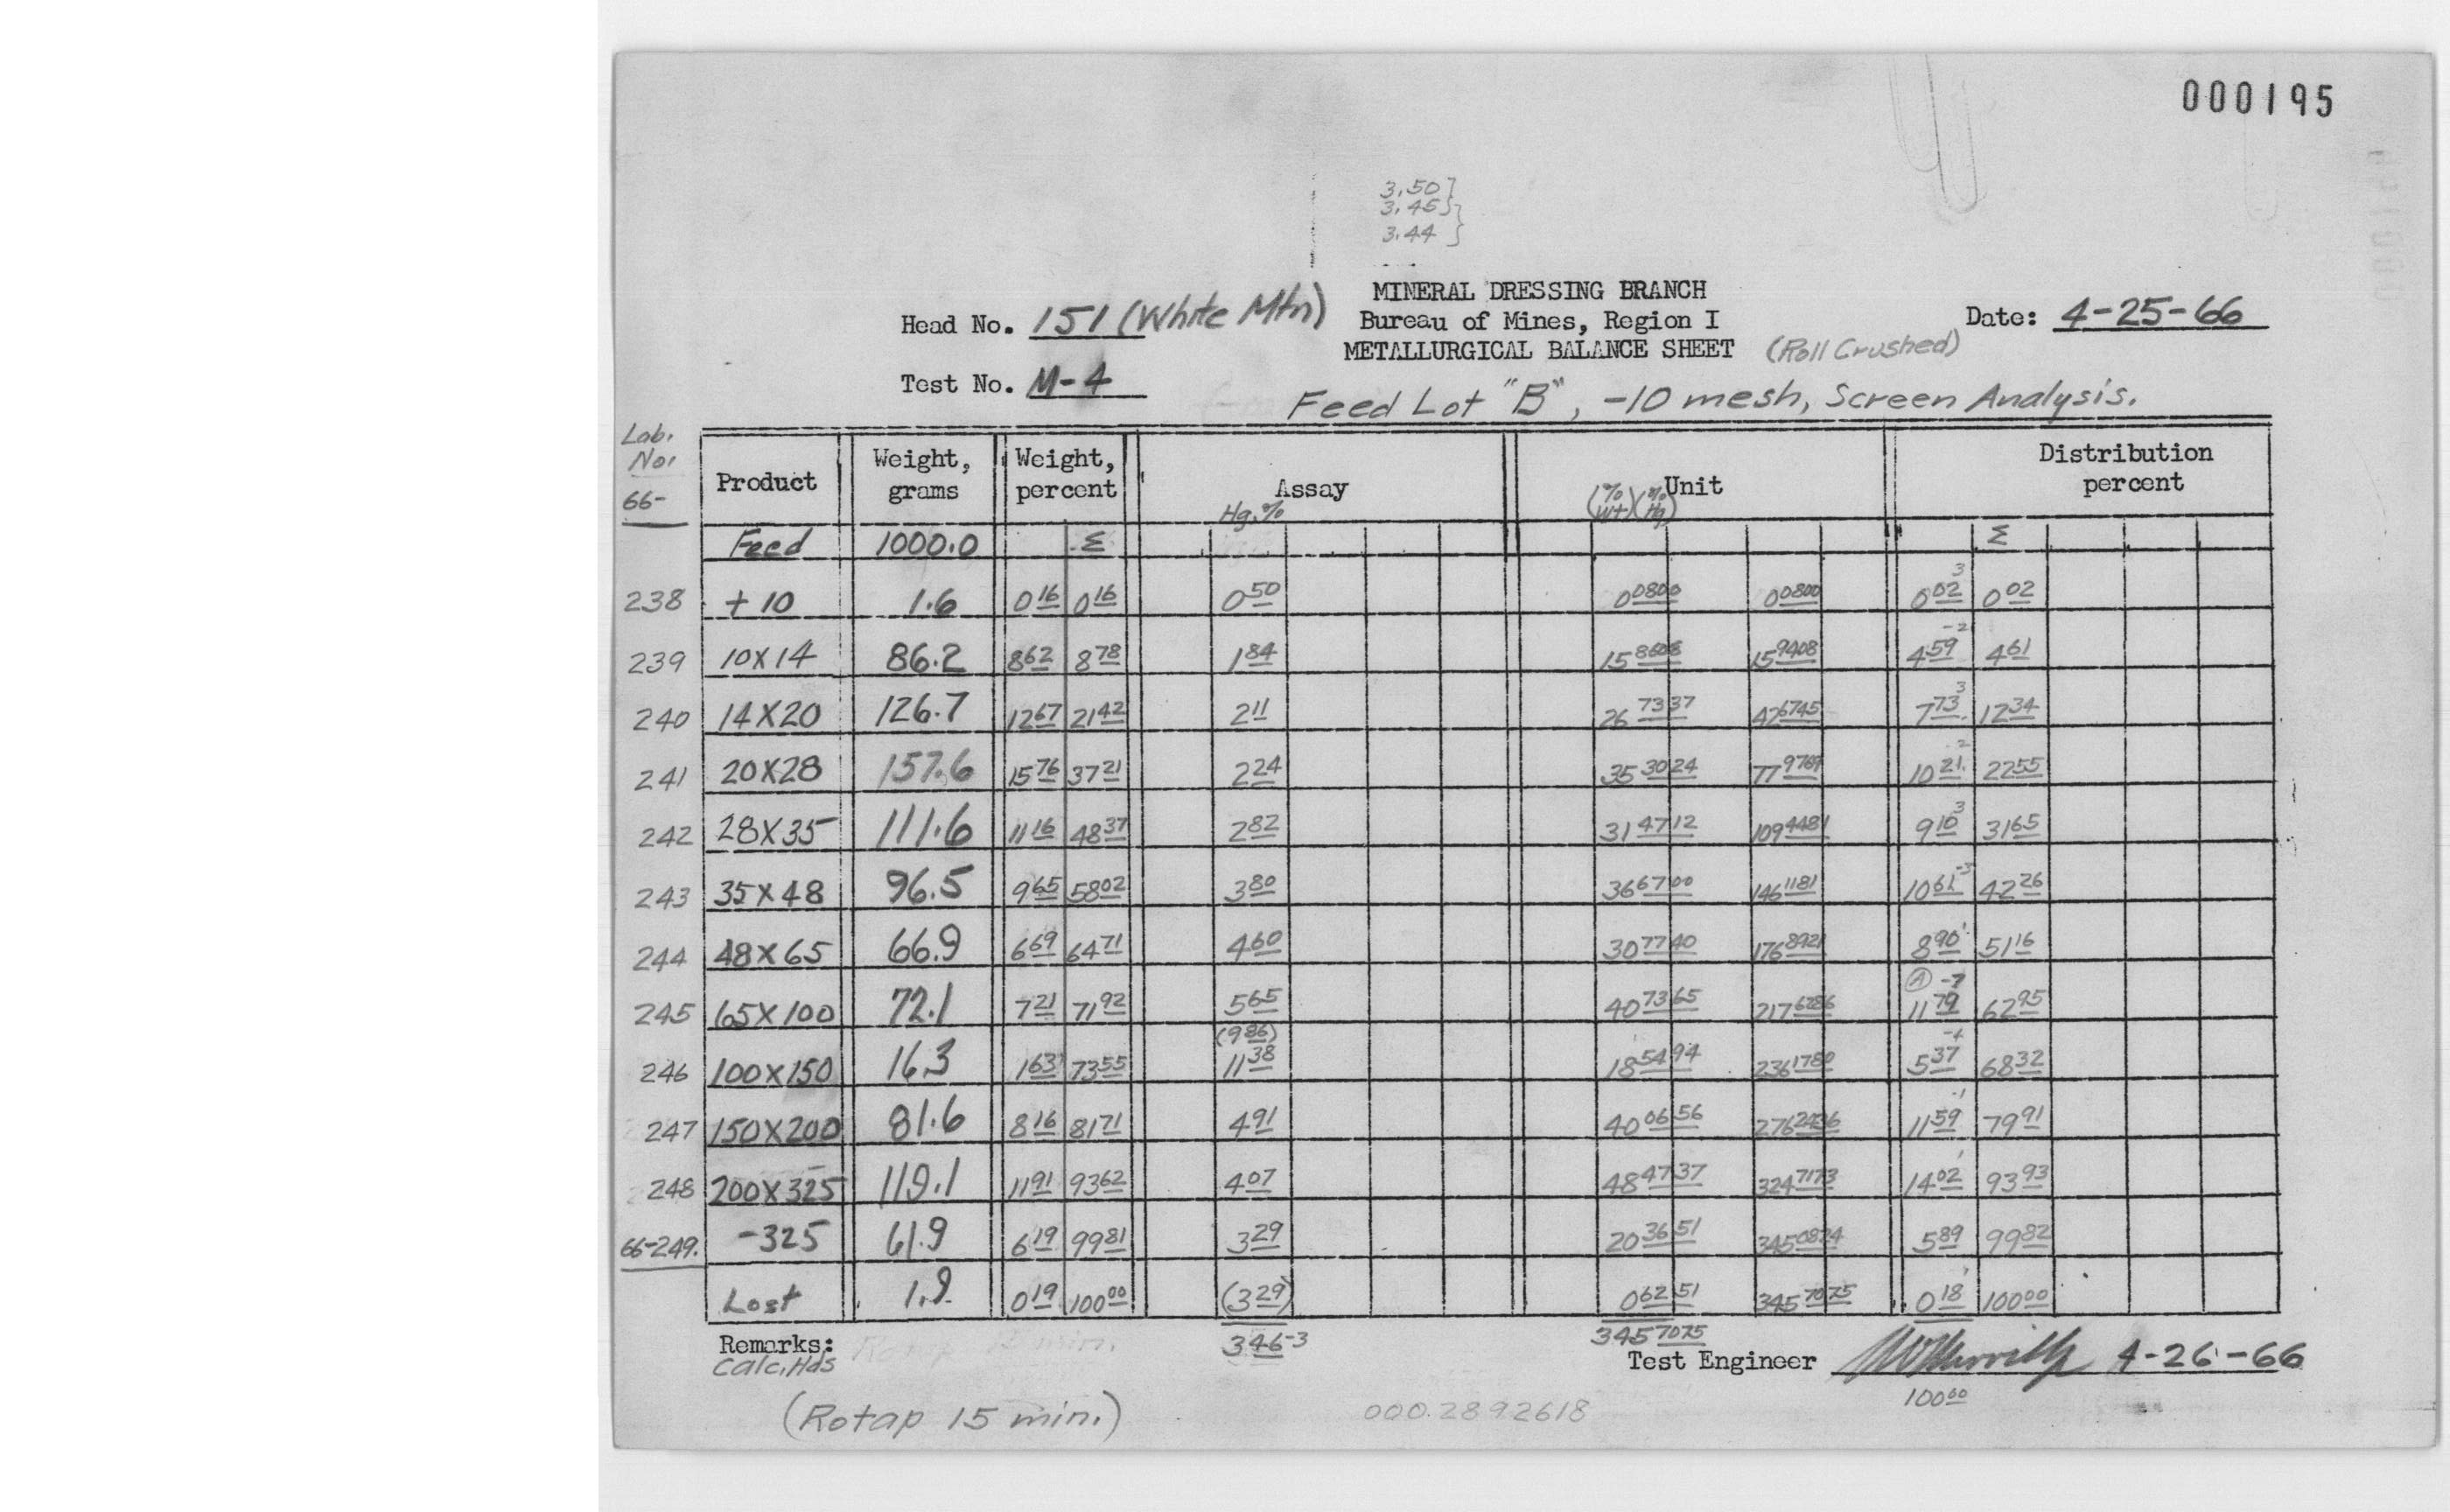 000195
3.50
3.45
3.44
MINERAL DRESSING BRANCH
Head No. 151 (White Mtn) Bureau of Mines, Region I Date: 4-25-66
METALLURGICAL BALANCE SHEET (Roll Crushed)
Test No. M-4
Feed Lot "B", -10 mesh, Screen Analysis.
Lab. No. 66- Product Weight, grams Weight, percent Assay Hg, % Unit (% Wt)(% Hg) Distribution percent
Feed 1000.0 Σ Σ
238 +10 1.6 0 16 0 16 0 50 0 0800 0 0800 0 02 3 0 02
239 10X14 86.2 8 62 8 78 1 84 15 8608 15 9408 4 59 -2 4 61
240 14X20 126.7 12 67 21 42 2 11 26 7337 42 6745 7 73 3 12 34
241 20X28 157.6 15 76 37 21 2 24 35 3024 77 9769 10 21 -2 22 55
242 28X35 111.6 11 16 48 37 2 82 31 4712 109 4481 9 10 3 31 65
243 35X48 96.5 9 65 58 02 3 80 36 6700 146 1181 10 61 -3 42 26
244 48X65 66.9 6 69 64 71 4 60 30 7740 176 8921 8 90 1 51 16
245 65X100 72.1 7 21 71 92 5 65 40 7365 217 6286 A -7 11 79 62 95
(9 86)
246 100X150 16.3 1 63 73 55 11 38 18 5494 236 1780 5 37 -4 68 32
247 150X200 81.6 8 16 81 71 4 91 40 0656 276 2436 11 59 -1 79 91
248 200X325 119.1 11 91 93 62 4 07 48 4737 324 7173 14 02 1 93 93
66-249. -325 61.9 6 19 99 81 3 29 20 3651 345 0824 5 89 99 82
Lost 1.9 0 19 100 00 (3 29) 0 6251 345 7075 0 18 1 100 00
Remarks: Rotap 15 min. 3 46-3 345 7075
Calc. Hds Test Engineer 4-26-66
100 00
(Rotap 15 min.) 000.2892618